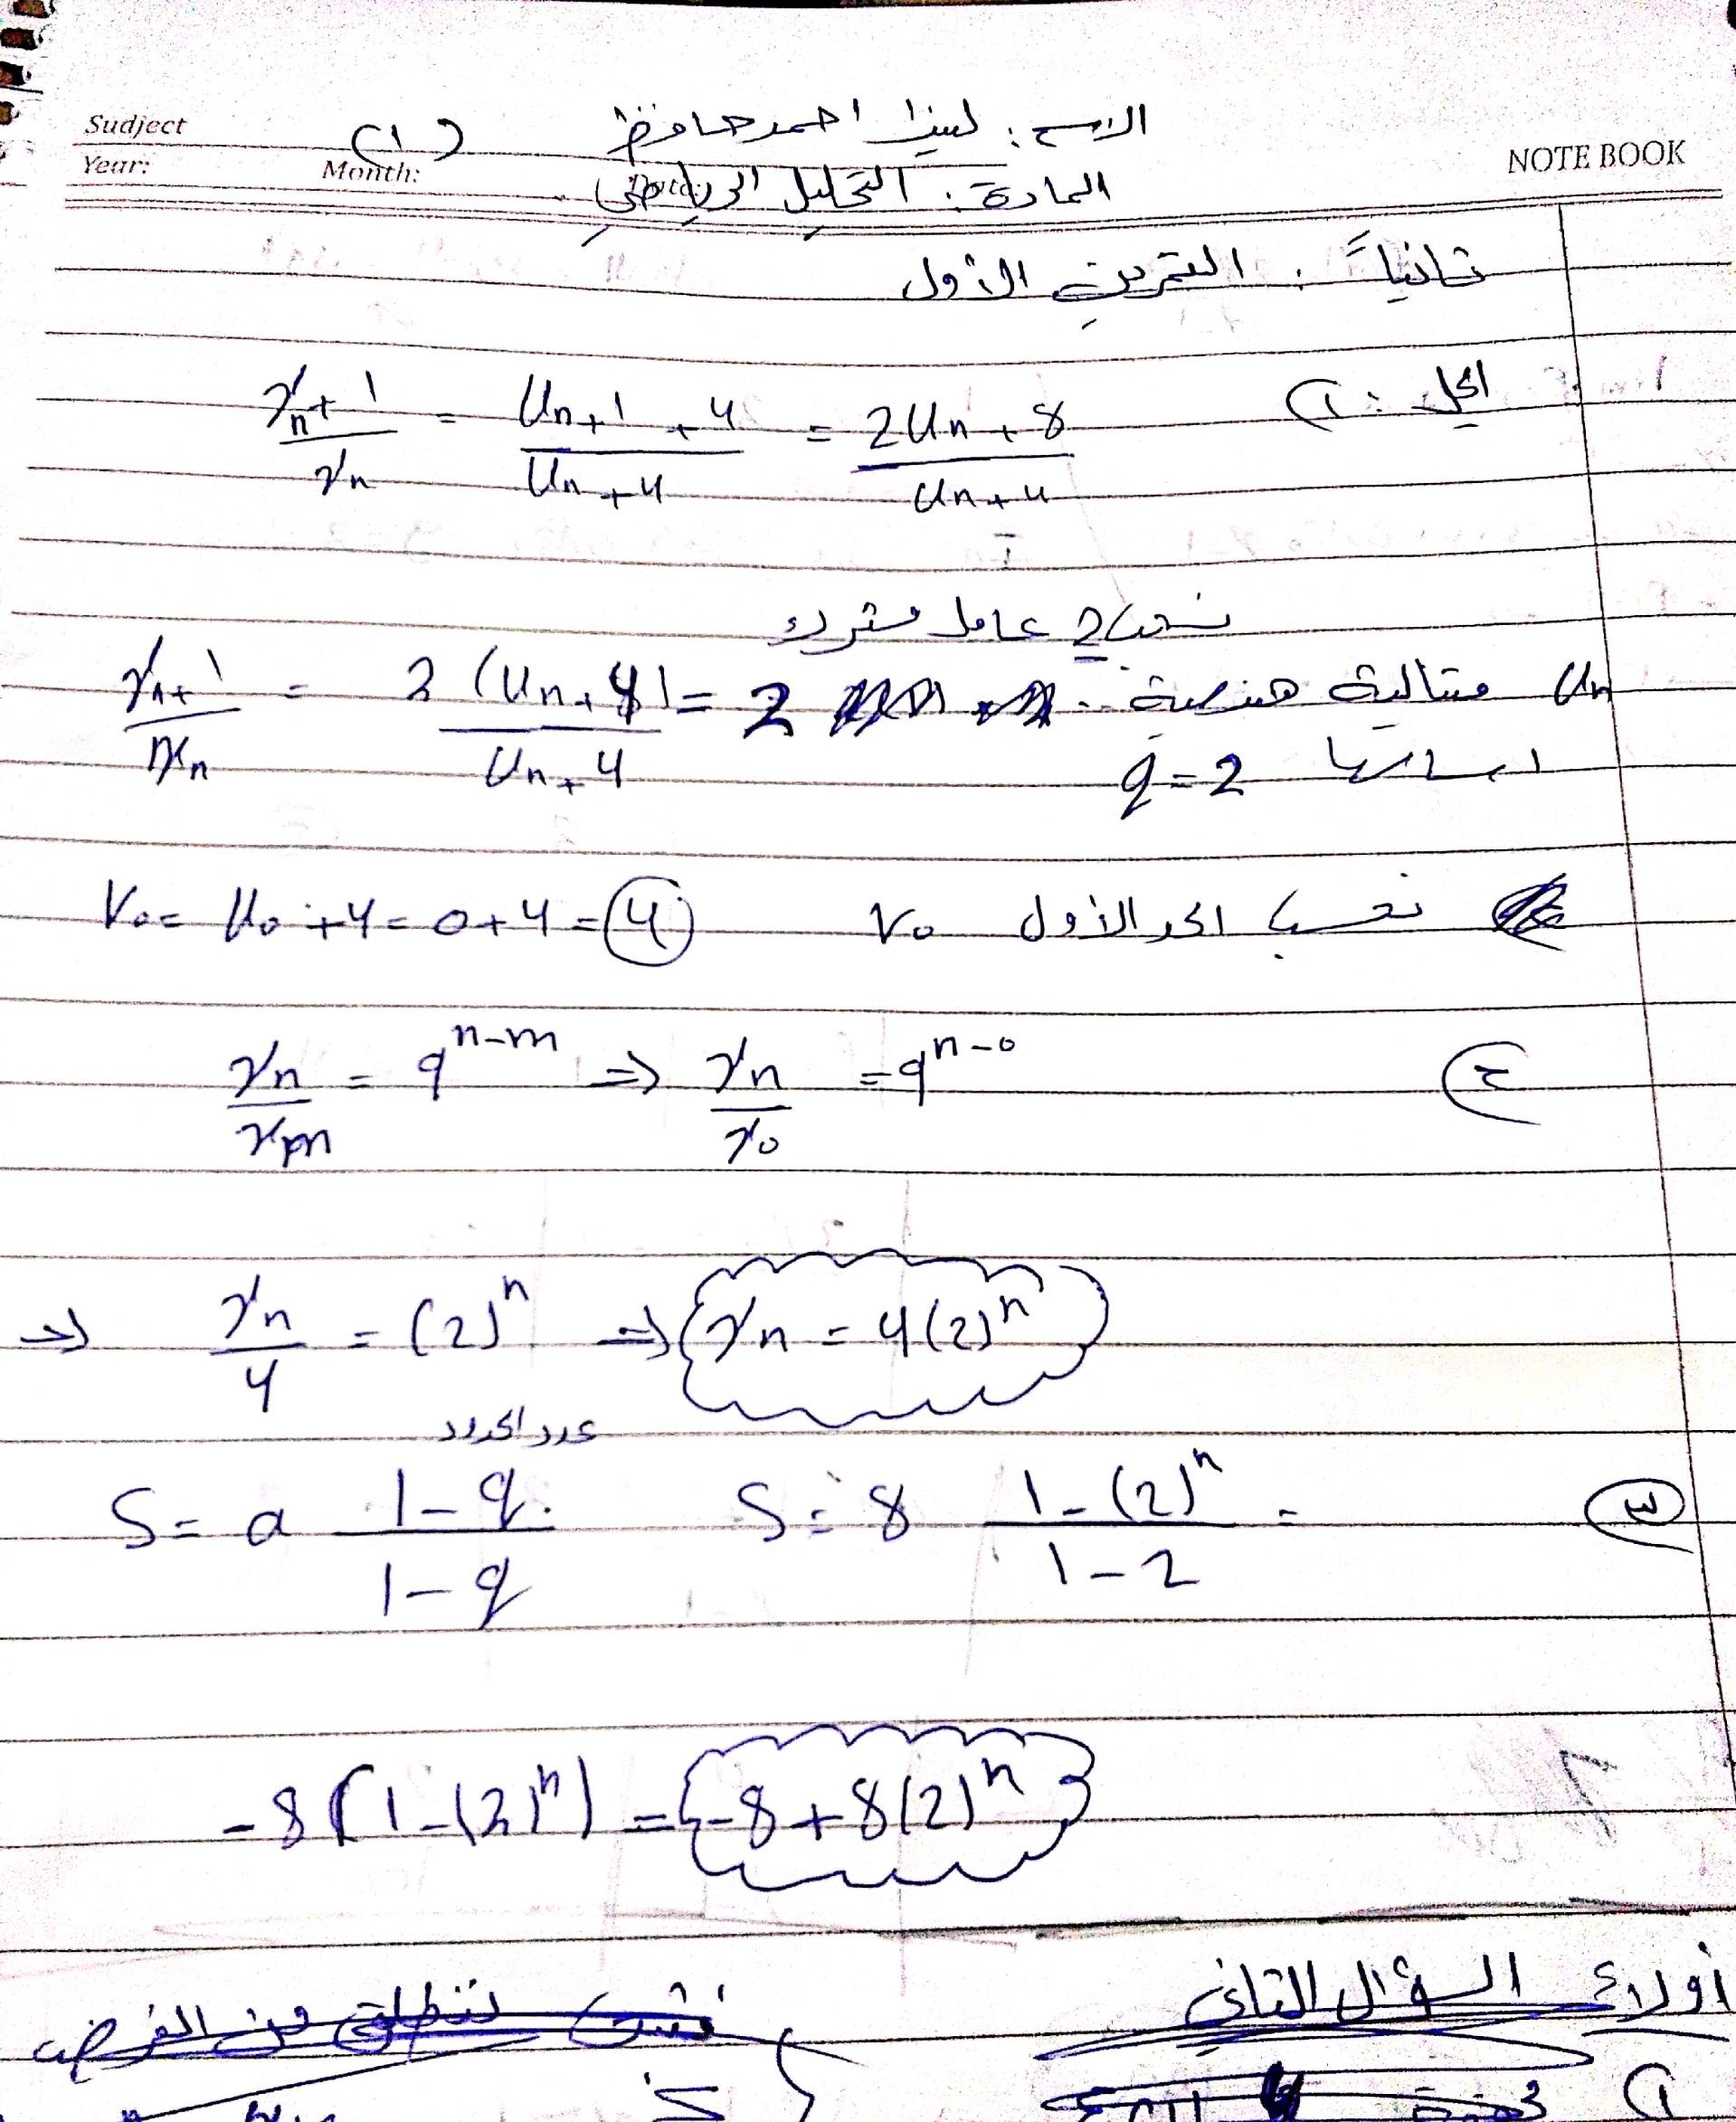 Sudject
Year: Month: (١) Date:
NOTE BOOK
الاسم: احمد حافظ
المادة: التحليل الرياضي
ثانياً: التمرين الأول
الحل: ١) xn+1 / xn = Un+1 + 4 / Un + 4 = 2Un + 8 / Un + 4
نسحب 2 عامل مشترك
xn+1 / xn = 2(Un+4) / Un+4 = 2 Un متتالية هندسية
اساسها q=2
نحسب الحد الأول V0 V0 = U0 + 4 = 0 + 4 = 4
٢) xn / xm = q^n-m => xn / x0 = q^n-0
=> xn / 4 = (2)^n => xn = 4(2)^n
عدد الحدود
٣) S = a 1-q / 1-q S = 8 1-(2)^n / 1-2 =
-8(1-(2)^n) = -8+8(2)^n
أولاً السؤال الثاني
ننطلق من الفرض